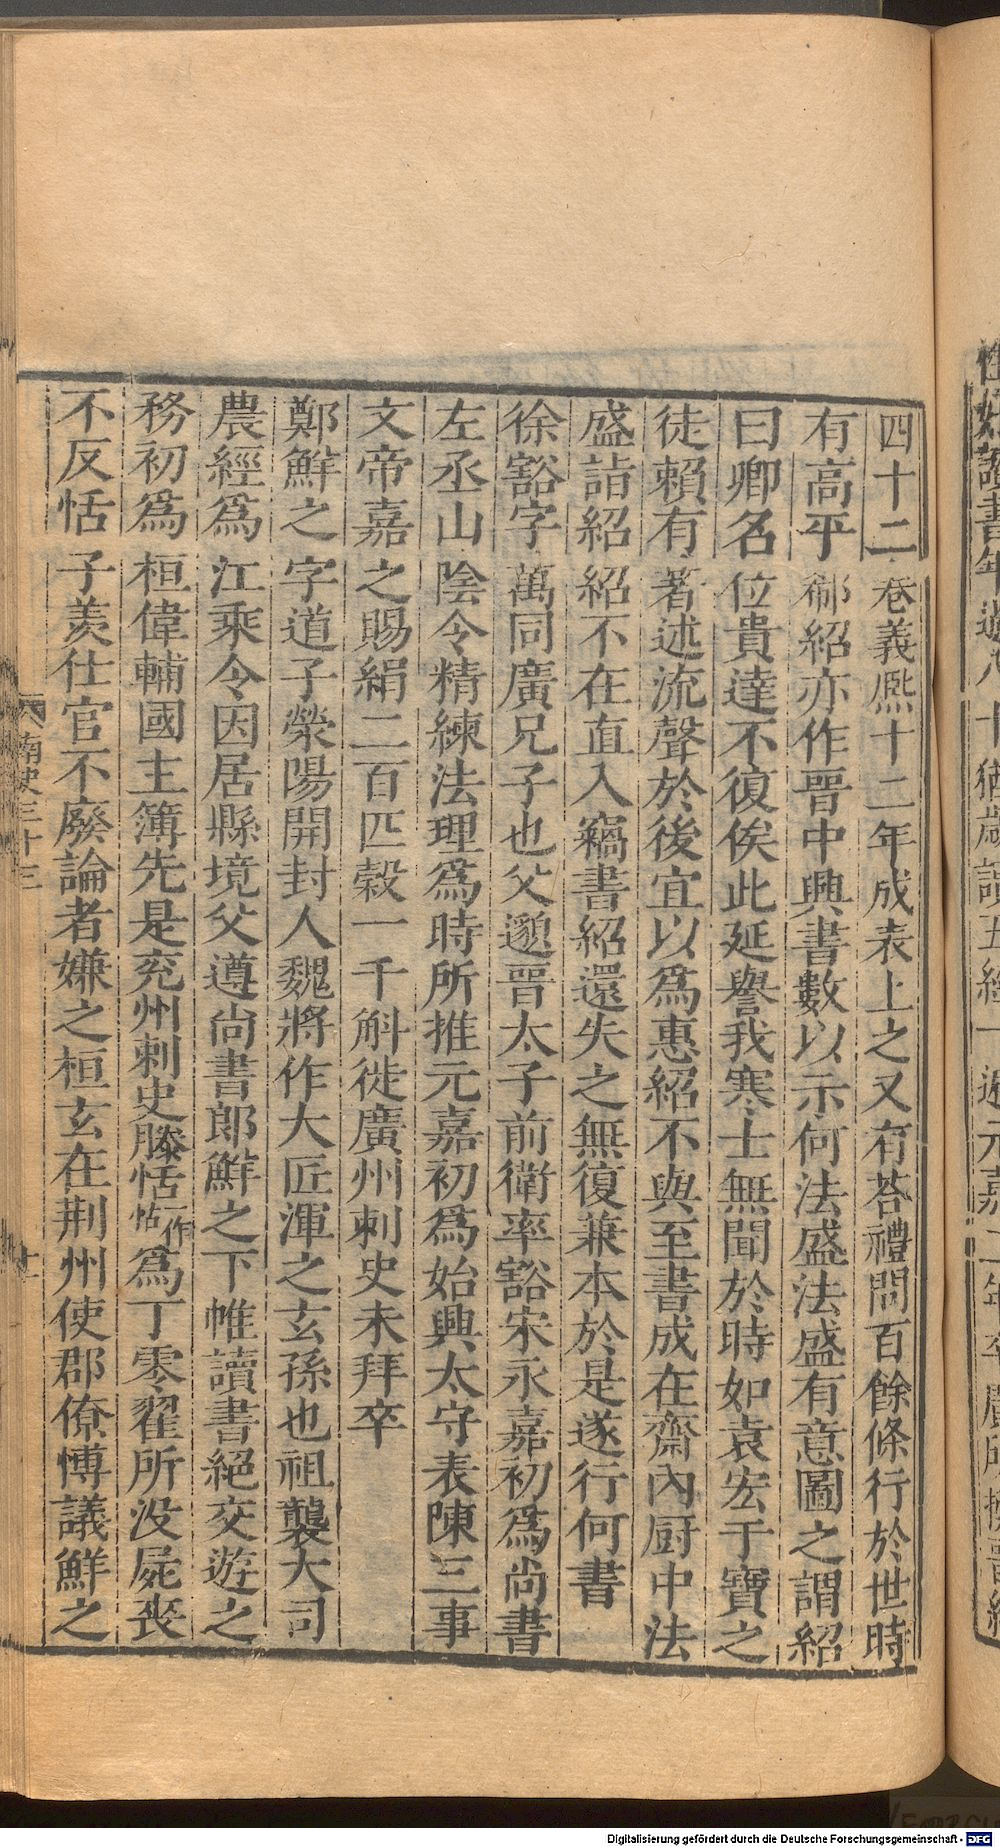 四十二卷義熙十二年成表上之又有荅禮問百餘條行於世時
有高平郗紹亦作晉中興書數以示何法盛法盛有意圖之謂紹
曰卿名位貴達不復俟此延譽我寒士無聞於時如袁宏于寶之
徒賴有著述流聲於後宜以爲惠紹不與至書成在齋內厨中法
盛詣紹紹不在直入竊書紹還失之無復兼本於是遂行何書
徐豁字萬同廣兄子也父邈晉太子前衛率豁宋永嘉初爲尚書
左丞山陰令精練法理爲時所推元嘉初爲始興太守表陳三事
文帝嘉之賜絹二百匹穀一千斛徙廣州刺史未拜卒
鄭鮮之字道子滎陽開封人魏將作大匠渾之玄孫也祖襲大司
農經爲江乘令因居縣境父遵尚書郎鮮之下帷讀書絕交遊之
務初爲桓偉輔國主簿先是兖州刺史滕恬一作怗爲丁零翟所没屍喪
不反恬子羨仕官不廢論者嫌之桓玄在荆州使郡僚愽議鮮之
南史三十三
十
Digitalisierung gefördert durch die Deutsche Forschungsgemeinschaft - DFG